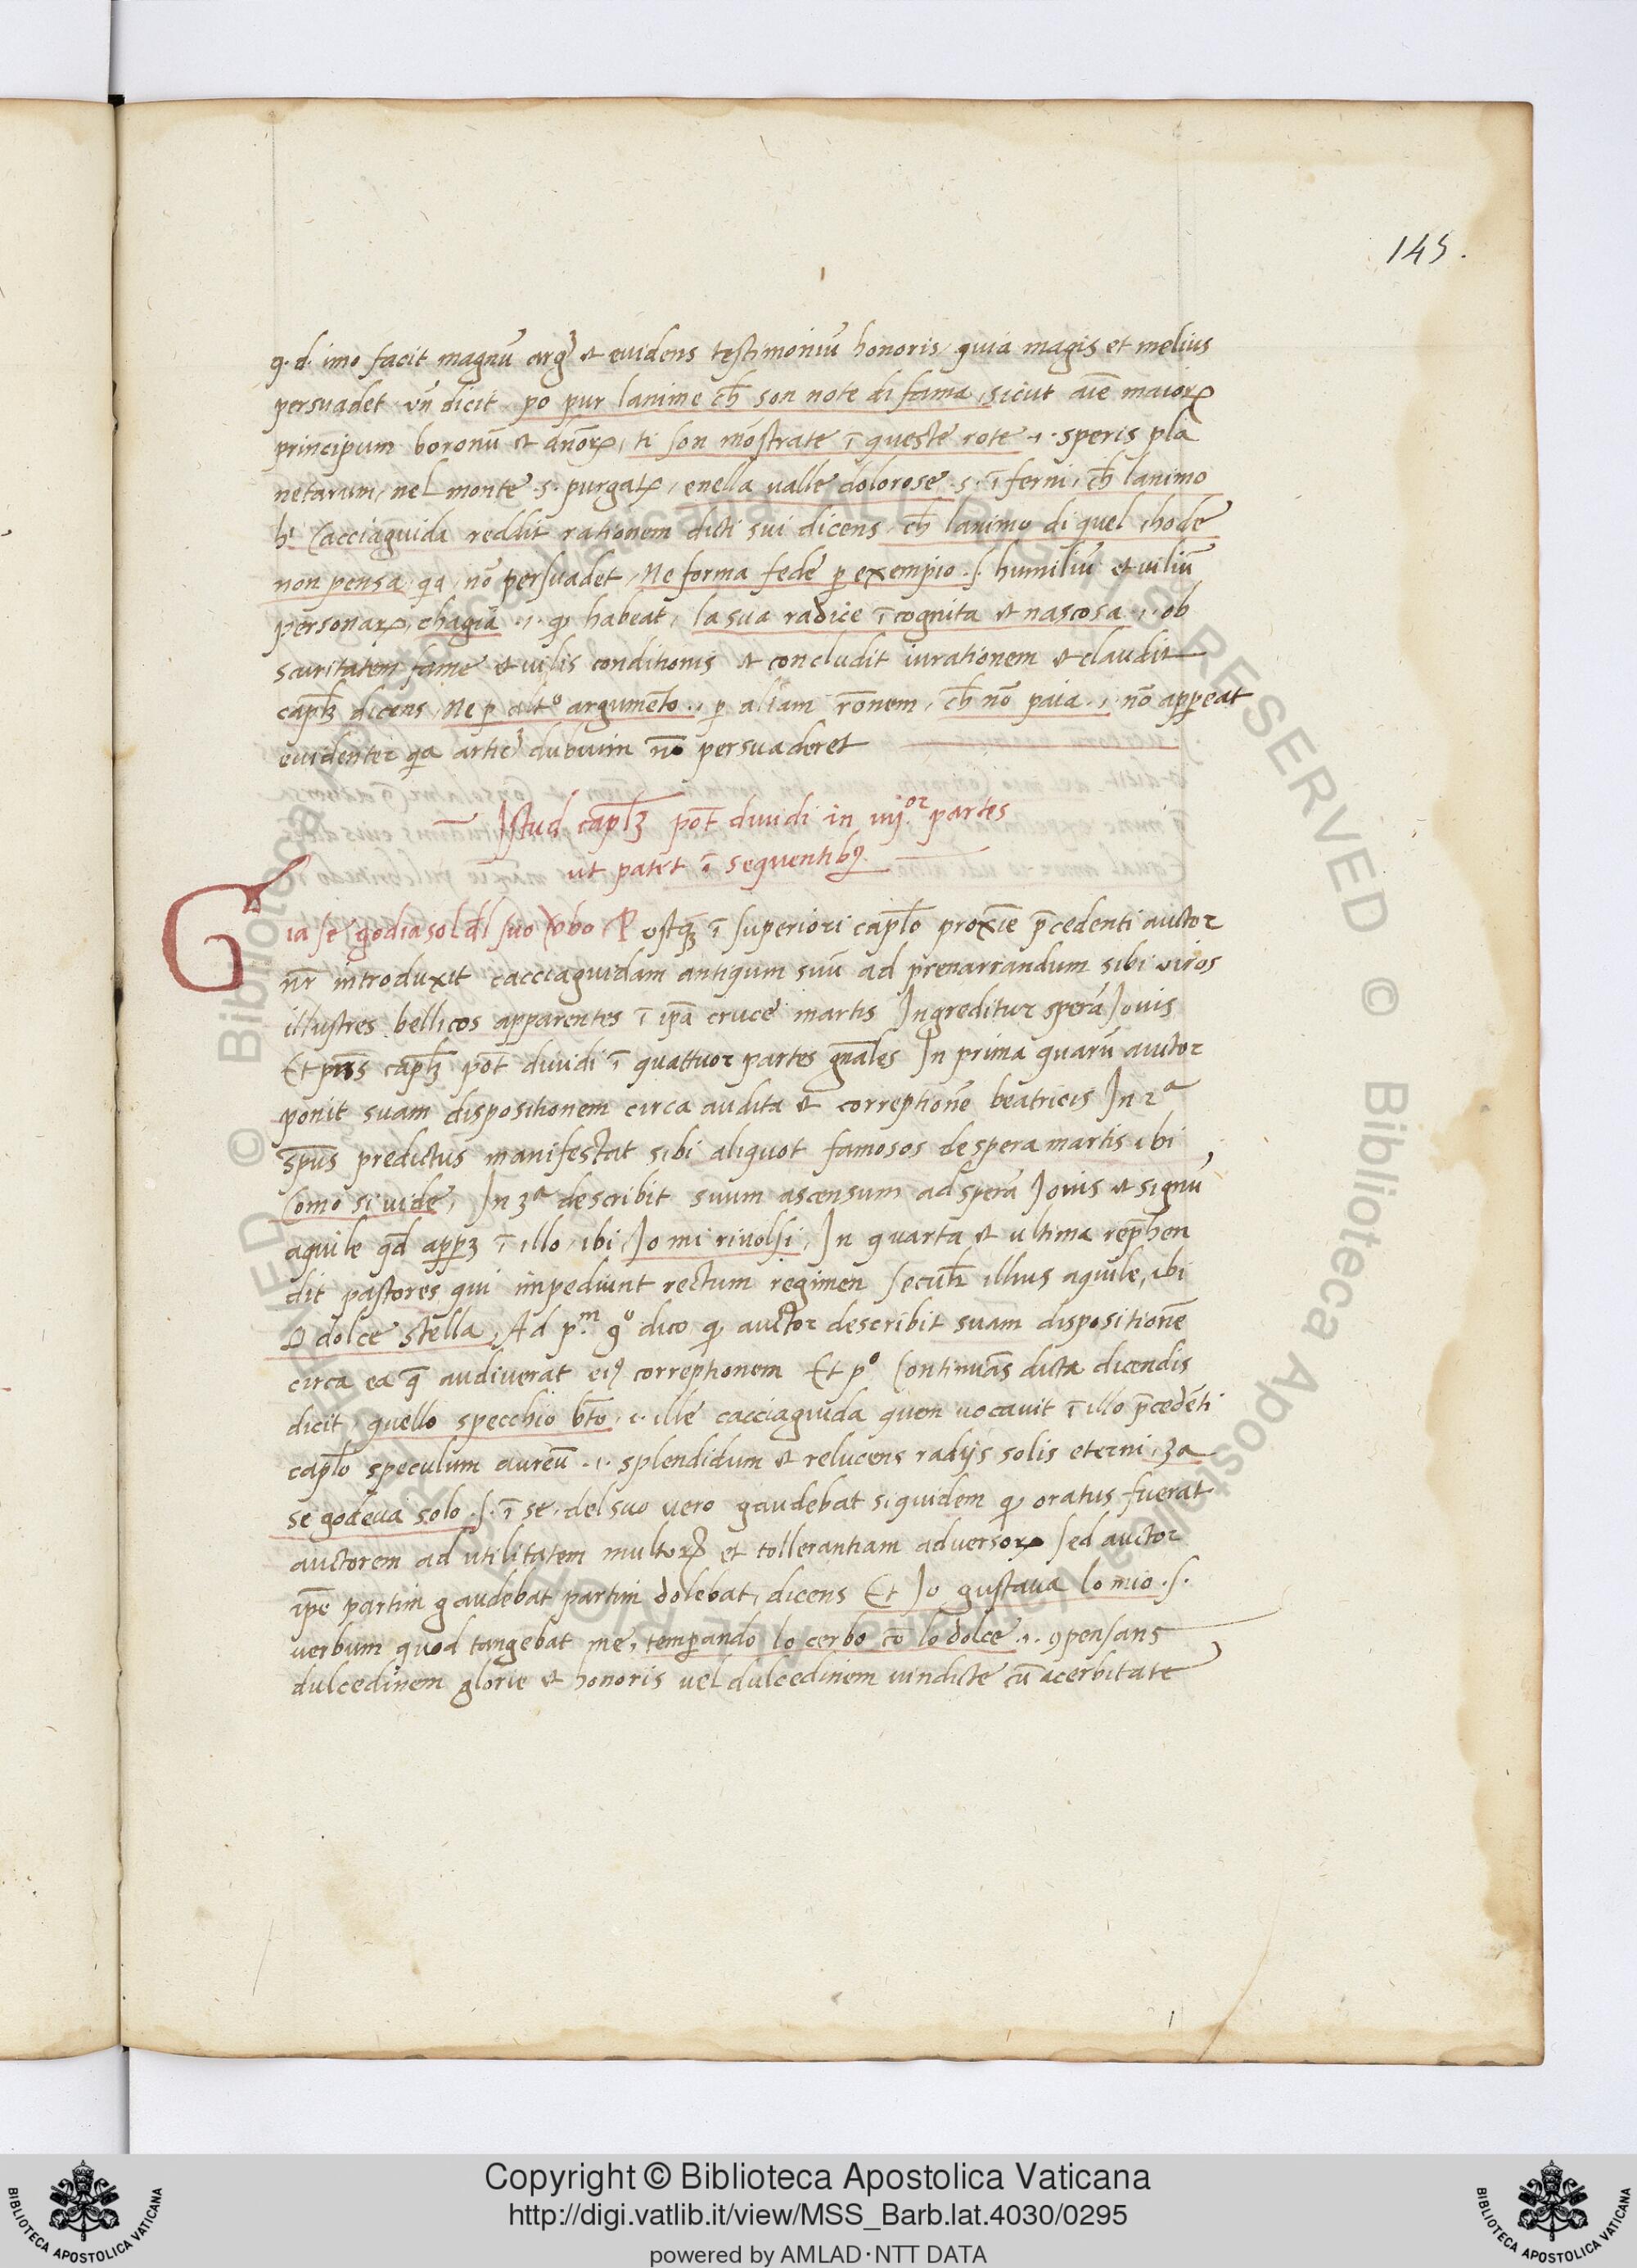 145.
q. d. imo facit magnū arg3 et evidens testimoniū honoris, quia magis et melius
persuadet vn̄ dicit po pur lanime ch̄ son note di fama, sicut aīe maioꝝ
principum boronū et dn̄oꝝ, ti son mōstrate ī queste rote .i. speris pla
netarum, nel monte .s. purgatꝝ, enella valle dolorose .s. ī ferni, ch̄ lanimo
hᶦ Cacciaguida reddit rationem dicti sui dicens, ch̄ lanimo di quel chode
non pensa qa nō persuadet, Ne forma fede p exempio .s. humiliū et viliū
personaꝝ, chagiā .i. qi habeat, la sua radice īcognita et nascosa .i. ob
scuritatem fame et vilis conditionis et concludit iurationem et claudit
capl̄ꝫ dicens, Ne p altᵒ argumēto .i. p aliam rōnem, ch̄ nō paia .i. nō appeat
evidenter qa artic3 dubium nō persuaderet
Istud capl̄ꝫ pōt dividi in iiij.or partes
ut patet ī sequentibꝰ
Gia se godia sol dl̄ suo vbo Postqꝫ ī superiori capl̄o proxīe p̄cedenti auctor
nr̄ introduxit cacciaguidam antiqum suū ad prenarrandum sibi viros
illustres bellicos apparentes ī ip̄a cruce martis Ingreditur sperā Jovis
Et pn̄s capl̄ꝫ pōt dividi ī quattuor partes gn̄ales In prima quarū auctor
ponit suam dispositionem circa audita et correptionē beatricis In 2ª
sp̄us predictus manifestat sibi aliquot famosos de spera martis ibi
Como si vide, In 3ª describit suum ascensum ad sperā Jovis et signū
aquile qd̄ appꝫ ī illo, ibi, Jo mi rivolsi, In quarta et ultima rep̄hen
dit pastores qui impediunt rectum regimen secūh illius aquile, ibi
O dolce stella, Ad p.m gᵒ dico qi auctor describit suam dispositionē
circa ea q̄ audiverat eiꝰ correptionem Et pᵒ Continuās dicta dicendis
dicit, quello specchio bt̄o .i. ille cacciaguida quem vocavit ī illo p̄cedēti
capl̄o speculum aureū .i. splendidum et relucens radijs solis eterni, 3a
se godeva solo .s. ī se, del suo vero gaudebat siquidem qi oratus fuerat
auctorem ad utilitatem multoꝝ et tollerantiam adversoꝝ sed auctor
ip̄e partim gaudebat partim dolebat, dicens Et Jo gustava lo mio .s.
verbum quod tangebat me, temperando lo cerbo cō lo dolce .i. ꝯpensans
dulcedinem glorie et honoris vel dulcedinem vindicte cū acerbitate
© Biblioteca Apostolica Vaticana ALL RIGHTS RESERVED
Copyright © Biblioteca Apostolica Vaticana
http://digi.vatlib.it/view/MSS_Barb.lat.4030/0295
powered by AMLAD·NTT DATA
BIBLIOTECA APOSTOLICA VATICANA
BIBLIOTECA APOSTOLICA VATICANA